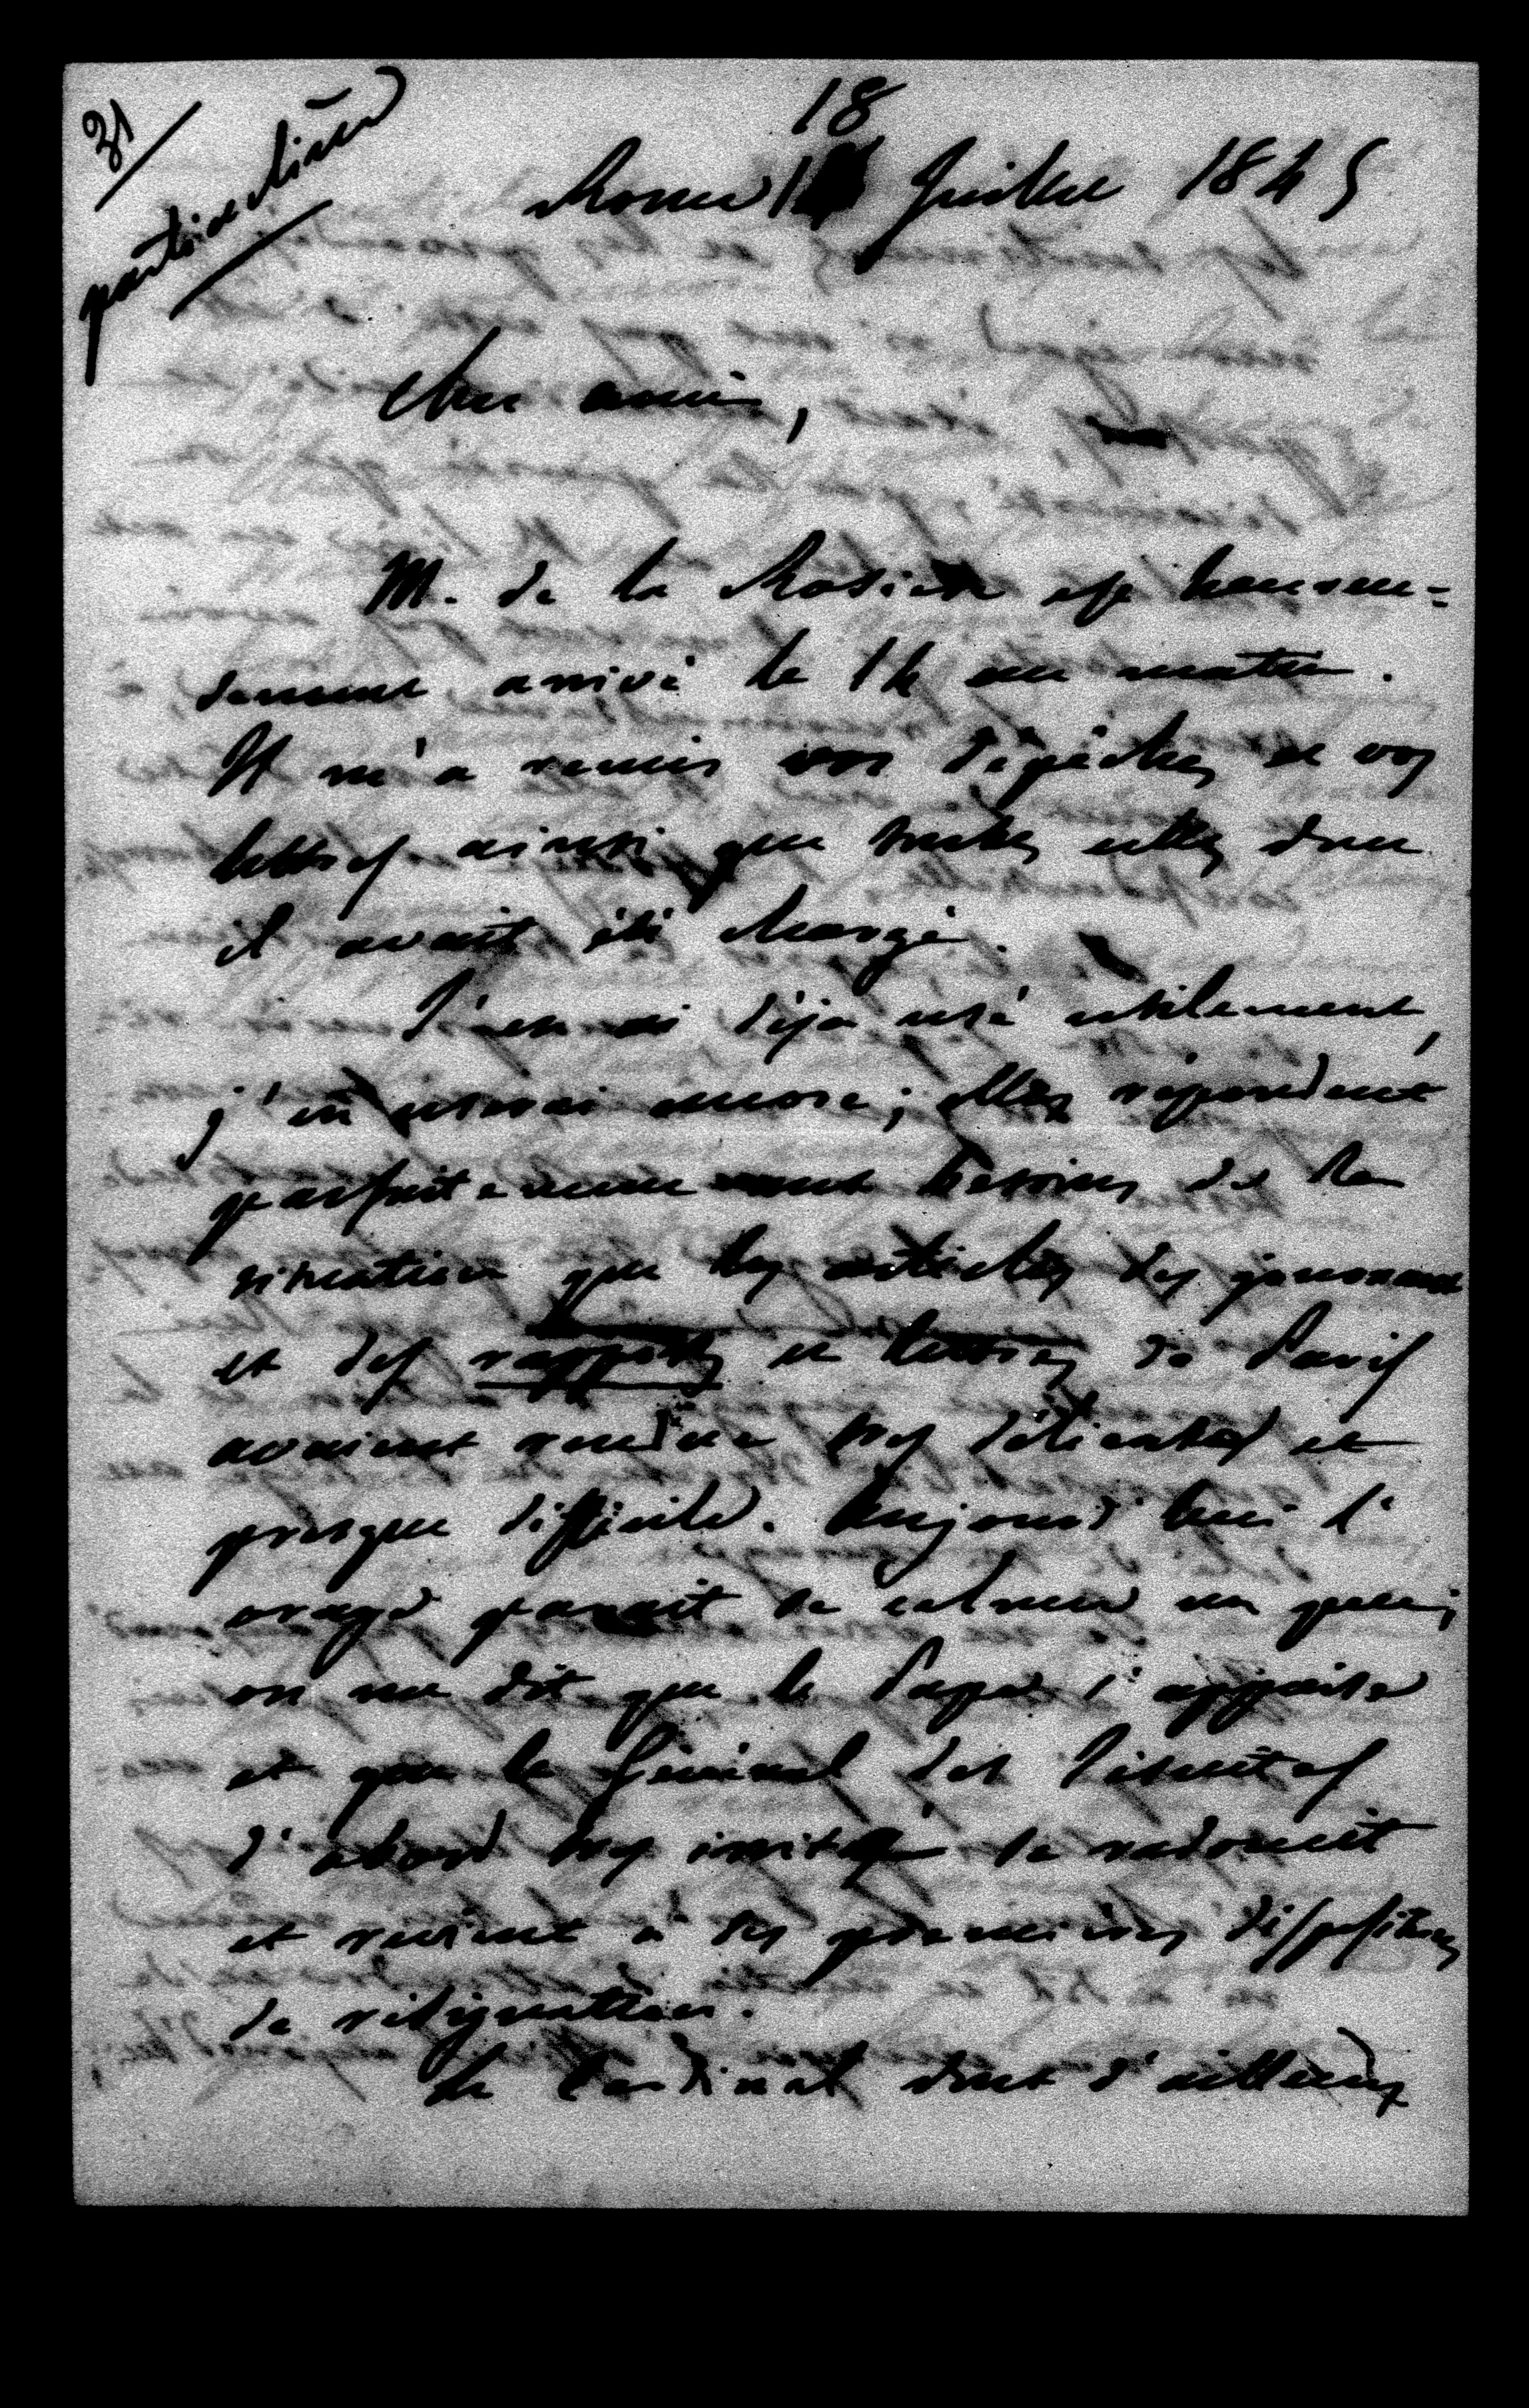 31
particulière
18
Rome 1 Juillet 1845
Cher ami,
M. de la Rosière est heureu=
sement arrivé le 14 au matin.
Il m'a remis vos dépêches et vos
lettres ainsi que toutes celles dont
il avait été chargé.
J'en ai déjà usé utilement,
j'en userai encore ; elles répondent
parfaitement aux besoins de la
situation que les articles des journaux
et des rapports et lettres de Paris
avaient rendue très délicate et
presque difficile. Aujourd'hui l'
orage paraît se calmer un peu ;
on me dit que le Pape s'appaise
et que le Général des Jésuites
d'abord très irrité se radoucit
et revient à ses premières dispositions
de résignation.
Le Cardinal dont d'ailleurs